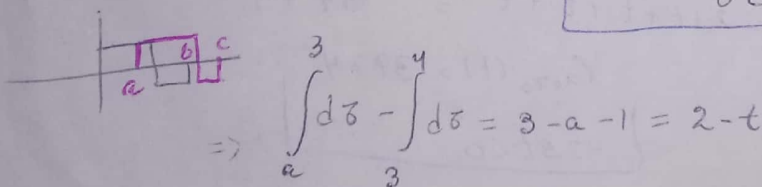 b c
a
=> ∫_a^3 dτ - ∫_3^4 dτ = 3 - a - 1 = 2 - t